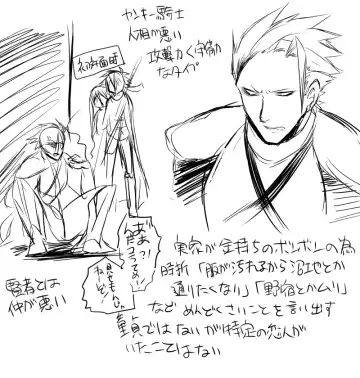 ヤンキー騎士
人相が悪い
攻撃力<守備力
なタイプ
初対面時
あぁ?!
実家が金持ちのボンボンの為
時折「服が汚れるから沼地とか
通りたくない」「野宿とかムリ」
など めんどくさいことを言い出す
童貞ではないが特定の恋人が
いたことはない
賢者とは
仲が悪い